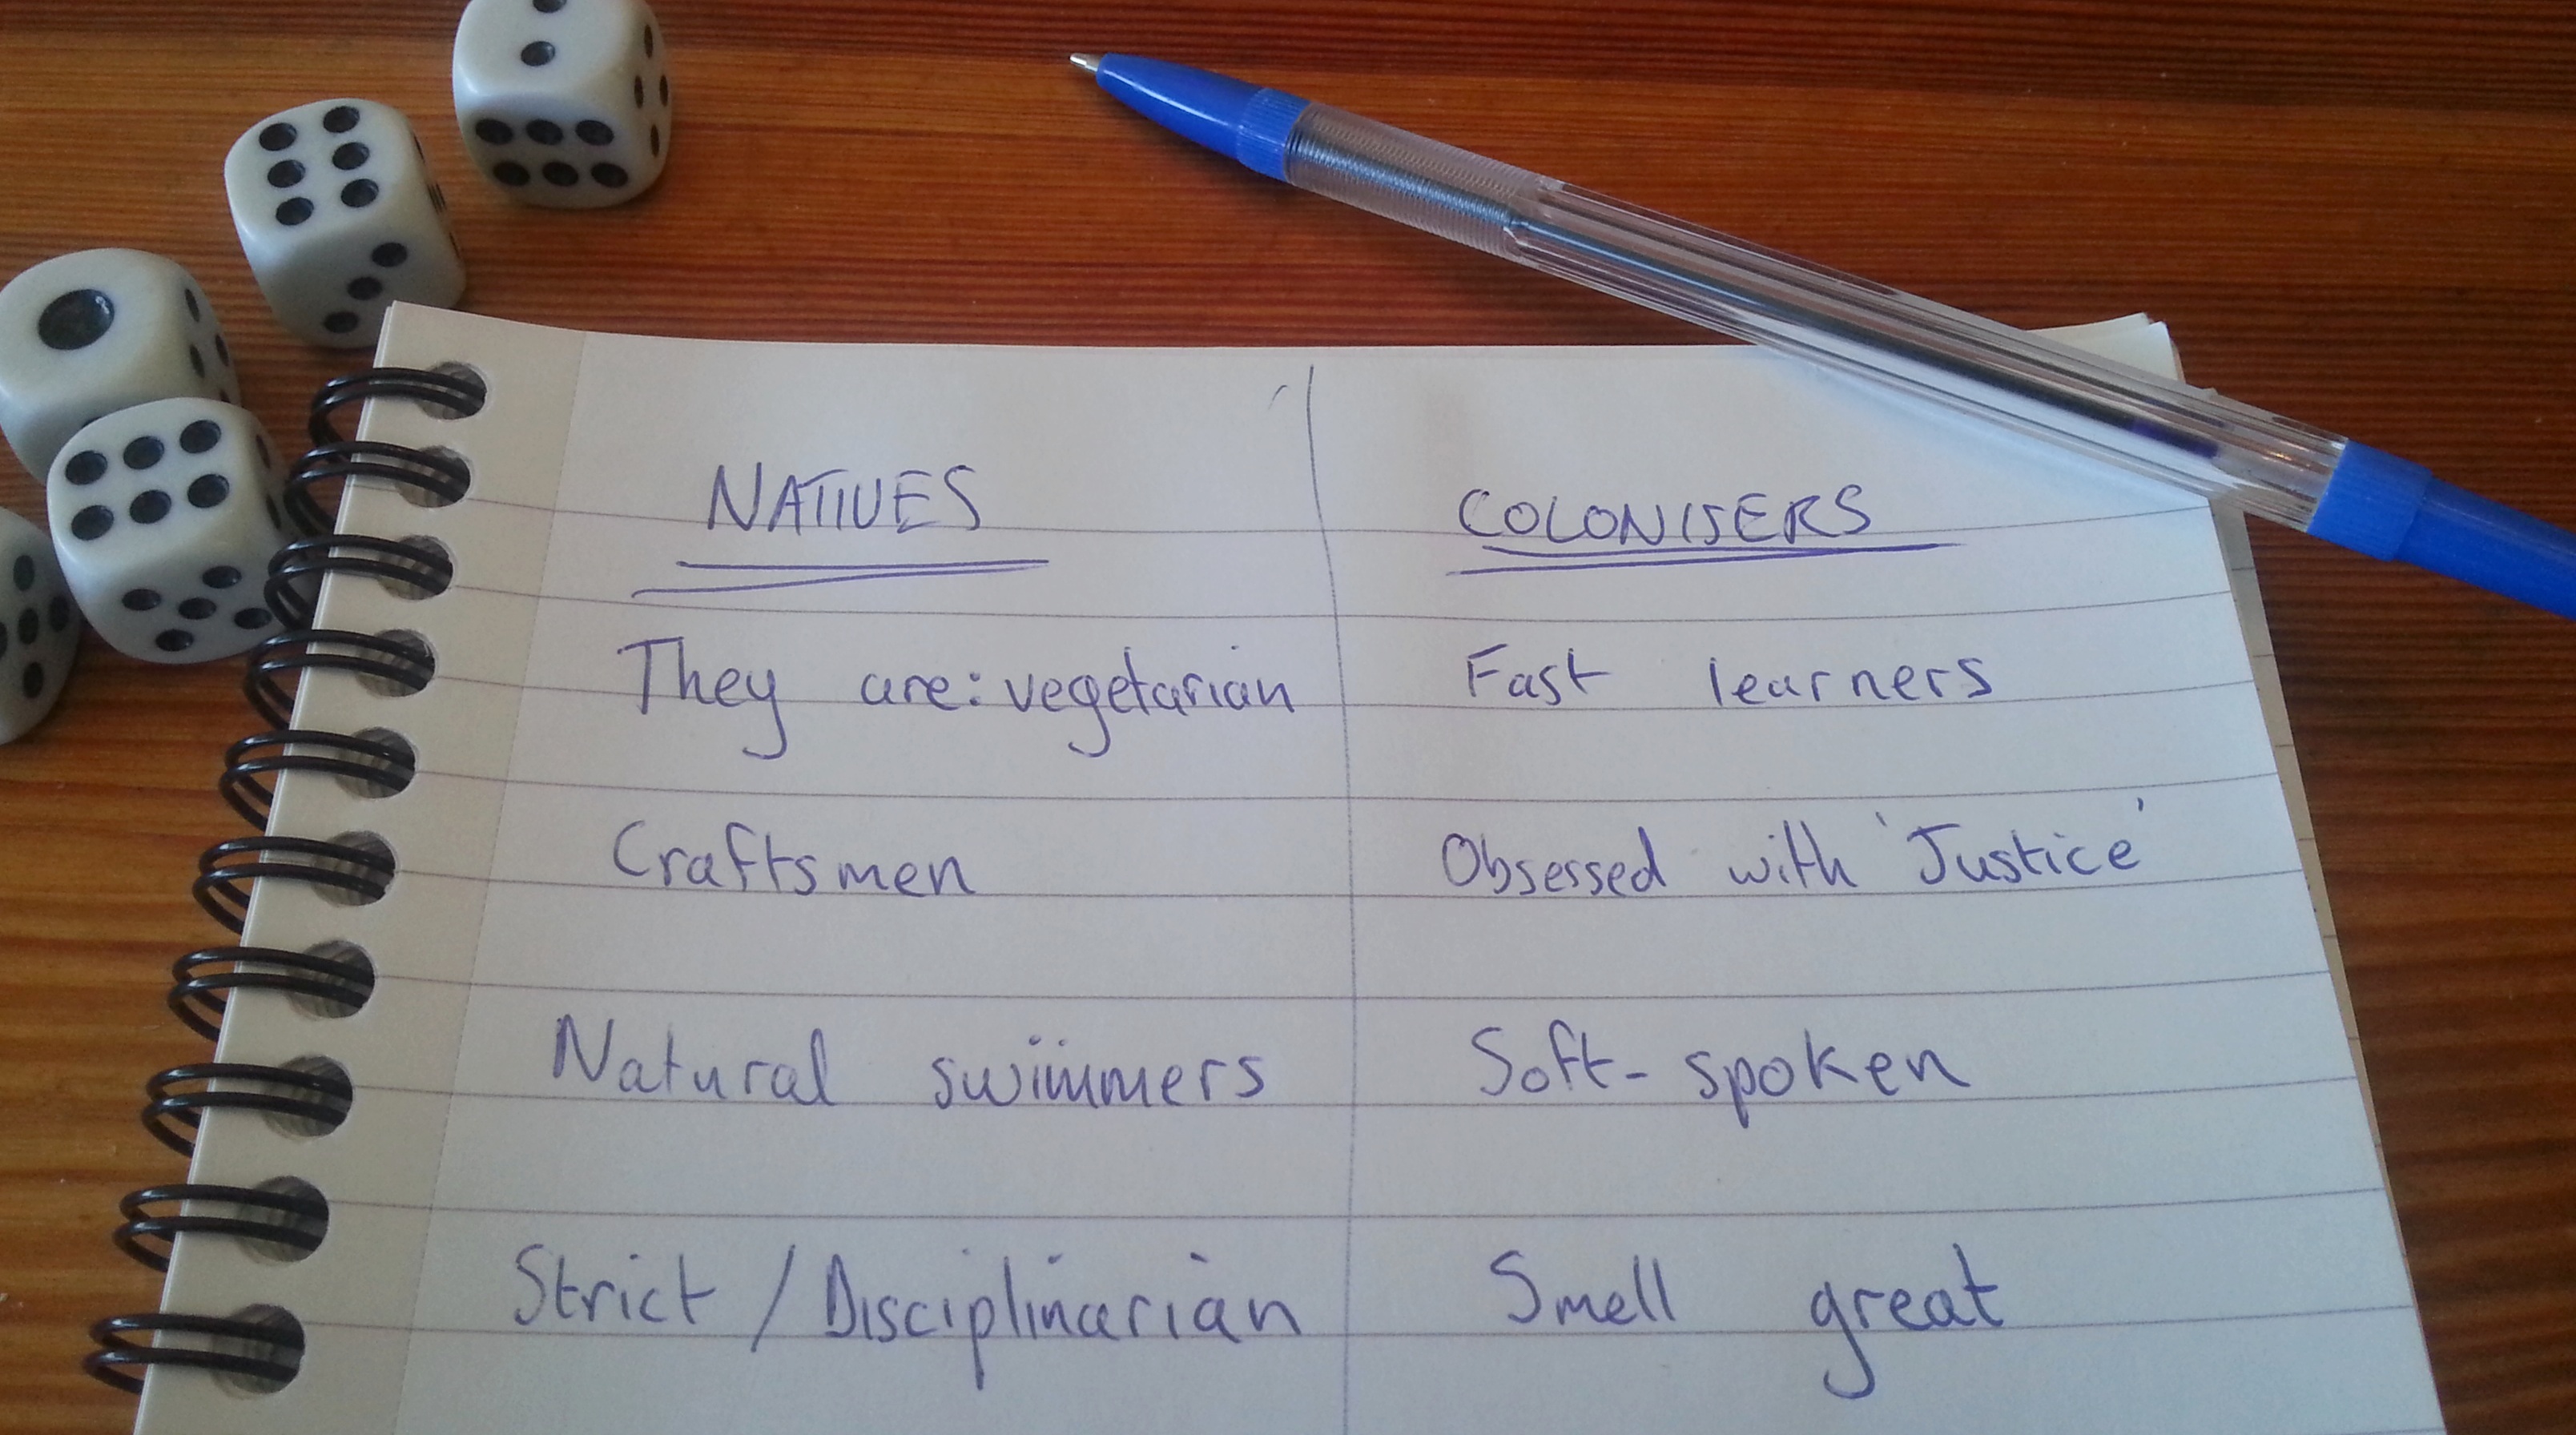 NATIVES COLONISERS
They are: vegetarian Fast learners
Craftsmen Obsessed with 'Justice'
Natural swimmers Soft-spoken
Strict / Disciplinarian Smell great